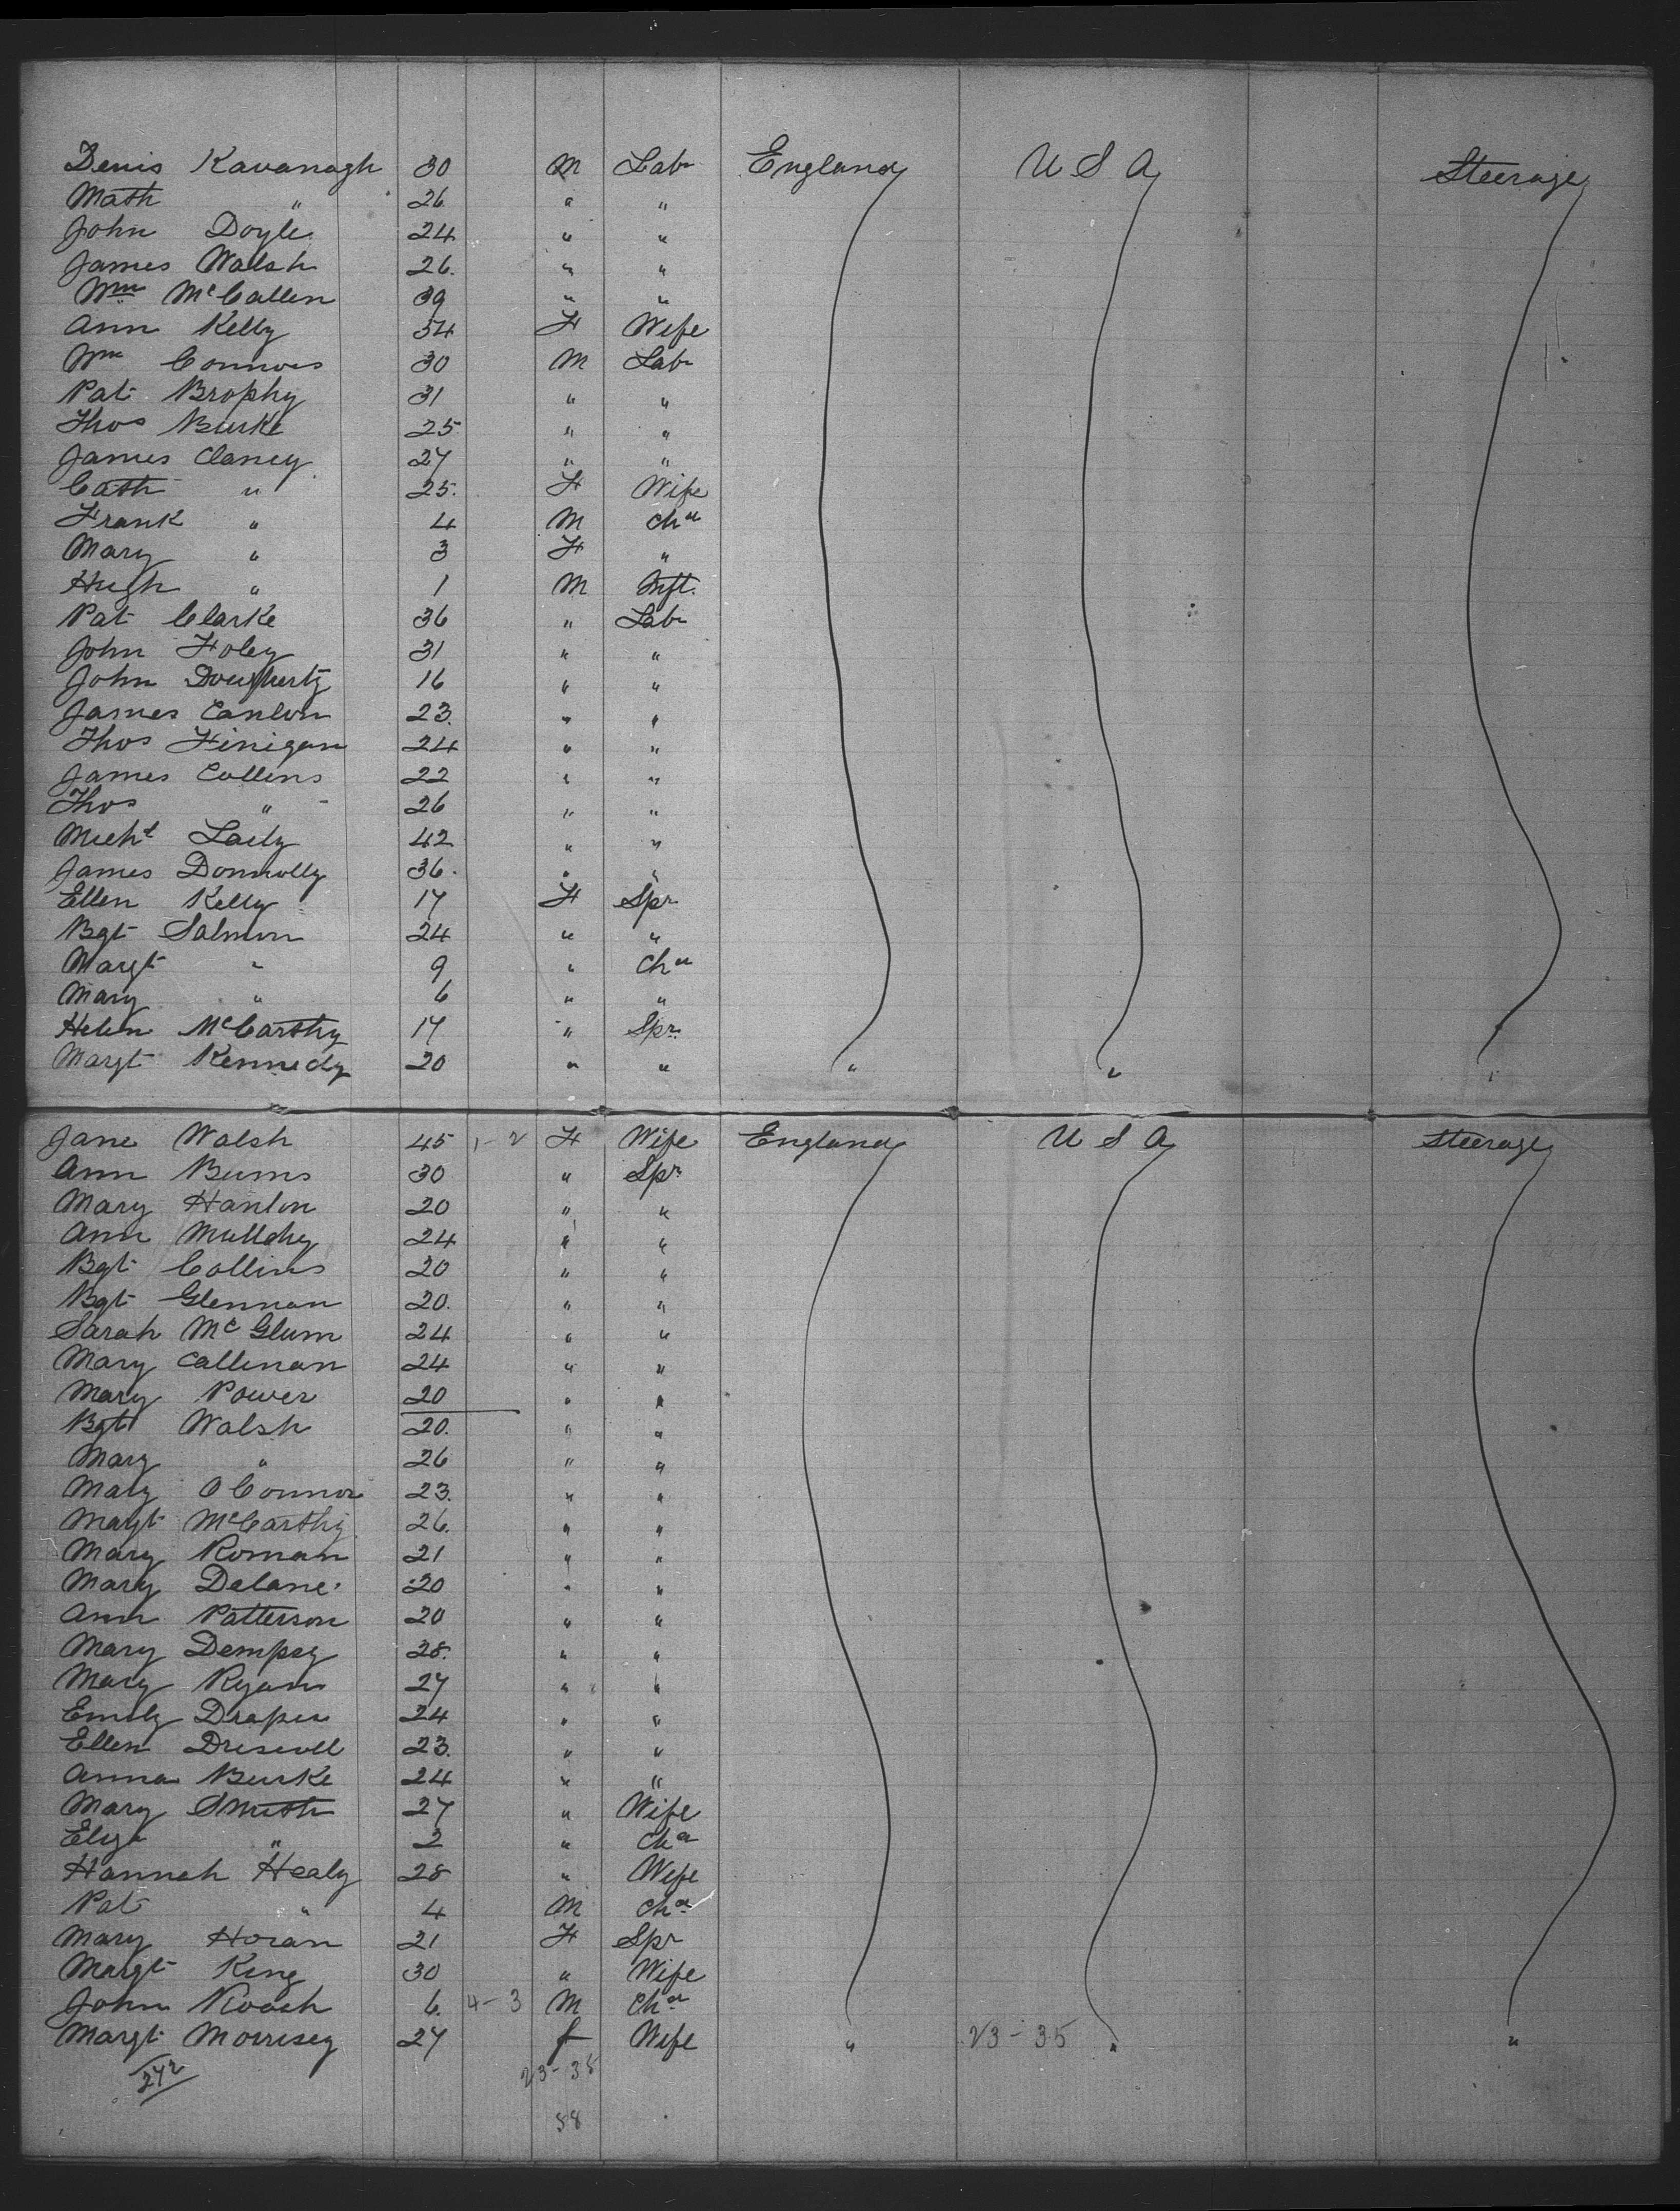 Denis Kavanagh 30 M Labr England U S A Steerage
Math " 26 " "
John Doyle 24 " "
James Walsh 26. " "
Wm McCallen 39 " "
Ann Kelly 54 F Wife
Wm Connors 30 M Labr
Pat Brophy 31 " "
Thos Burke 25 " "
James Clancy 27 " "
Cath " 25. F Wife
Frank " 4 M Chd
Mary " 3 F "
Hugh " 1 M Inft.
Pat Clarke 36 " Labr
John Foley 31 " "
John Dougherty 16 " "
James Canlon 23. " "
Thos Finigan 24 " "
James Collins 22 " "
Thos " 26 " "
Michl Laily 42 " "
James Donnolly 36. " "
Ellen Kelly 17 F Spr
Bgt Salmon 24 " "
Margt " 9 " Chd
Mary " 6 " "
Helen McCarthy 17 " Spr.
Margt Kennedy 20 " " " " "
Jane Walsh 45 1-2 F Wife England U S A Steerage
Ann Burns 30 " Spr
Mary Hanlon 20 " "
Ann 24 " "
Bgt Collins 20 " "
Bgt Glennan 20. " "
Sarah McGlum 24 " "
Mary Callinan 24 " "
Mary Power 20 " "
Bgt Walsh 20. " "
Mary " 26 " "
Mary O Connor 23. " "
Margt McCarthy 26. " "
Mary Roman 21 " "
Mary Delane 20 " "
Ann Patterson 20 " "
Mary Dempsy 28. " "
Mary Ryan 27 " "
Emily Draper 24 " "
Ellen Driscoll 23. " "
Anna Burke 24 " "
Mary Smith 27 " Wife
Eliza " 2 " Chd
Hannah Healy 28 " Wife
Pat " 4 M Chd
Mary Horan 21 F Spr
Margt King 30 " Wife
John Roach 6. 4-3 M Chd
Margt Morrisey 27 f Wife " 23-35 " "
272 23-35
58